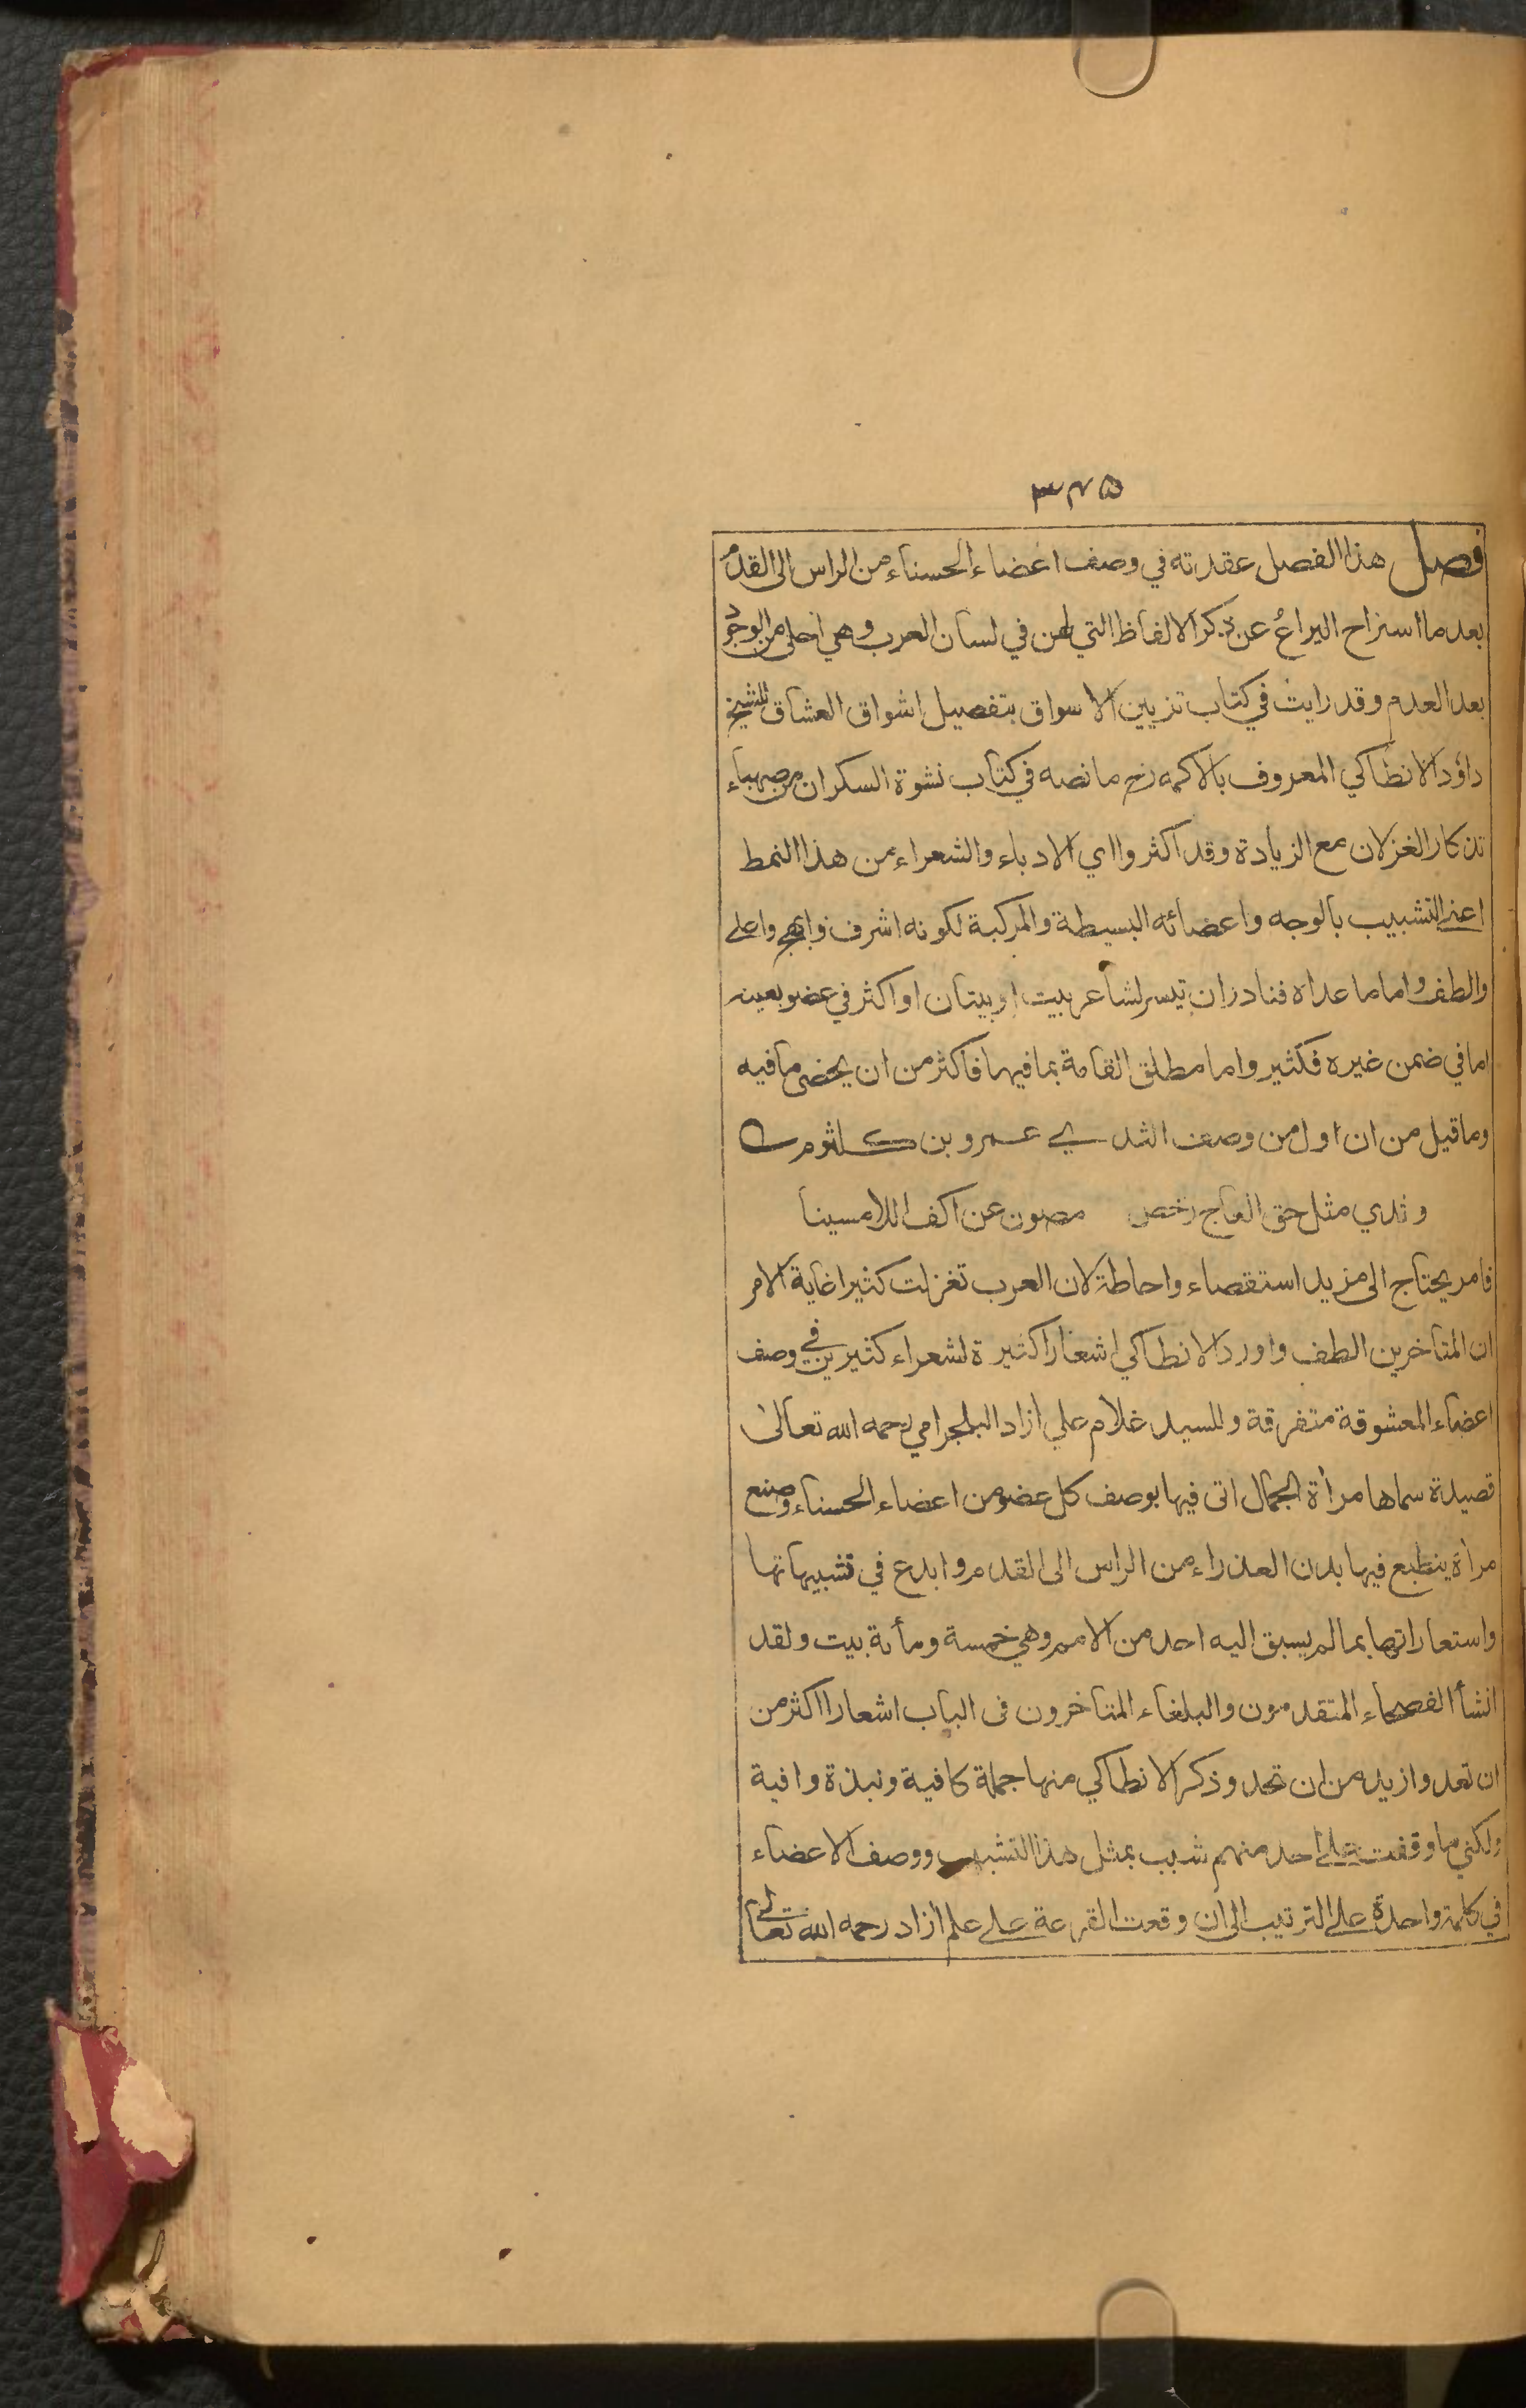 ٣٤٥
فصل هذا الفصل عقدته في وصف اعضاء الحسناء من الراس الى القدم
بعد ما استراح اليراعُ عن ذكر الالفاظ التي لهن في لسان العرب وهي احلى من الوجود
بعد العدم وقد رايت في كتاب تزيين الاسواق بتفصيل اشواق العشاق للشيخ
داؤد الانطاكي المعروف بالاكمه رح ما نصه في كتاب نشوة السكران من صهباء
تذكار الغزلان مع الزيادة وقد اكثروا اي الادباء والشعراء من هذا النمط
اعني التشبيب بالوجه واعضائه البسيطة والمركبة لكونه اشرف وابهج واعلى
والطف واما ما عداه فنادر ان تيسر لشاعر بيت او بيتان او اكثر في عضو بعينه
اما في ضمن غيره فكثير واما مطلق القامة بما فيها فاكثر من ان يحصى ما فيه
وما قيل من ان اول من وصف الثدي عمرو بن كلثوم
وثدي مثل حق العاج رخص مصون عن اكف اللامسينا
فامر يحتاج الى مزيد استقصاء واحاطة لان العرب تغزلت كثيرا غاية الامر
ان المتاخرين الطف واورد الانطاكي اشعارا كثيرة لشعراء كثيرين في وصف
اعضاء المعشوقة متفرقة وللسيد غلام علي ازاد البلجرامي رحمه الله تعالى
قصيدة سماها مرأة الجمال اتى فيها بوصف كل عضو من اعضاء الحسناء وصنع
مرأة ينطبع فيها بدن العذراء من الراس الى القدم وابدع في تشبيهاتها
واستعاراتها بما لم يسبق اليه احد من الامم وهي خمسة ومأة بيت ولقد
انشأ الفصحاء المتقدمون والبلغاء المتاخرون في الباب اشعارا اكثر من
ان تعد وازيد من ان تحد وذكر الانطاكي منها جملة كافية ونبذة وافية
ولكني ما وقفت على احد منهم شبب بمثل هذا التشبيب ووصف الاعضاء
في كلمة واحدة على الترتيب الى ان وقعت القرعة على علم ازاد رحمه الله تعالى